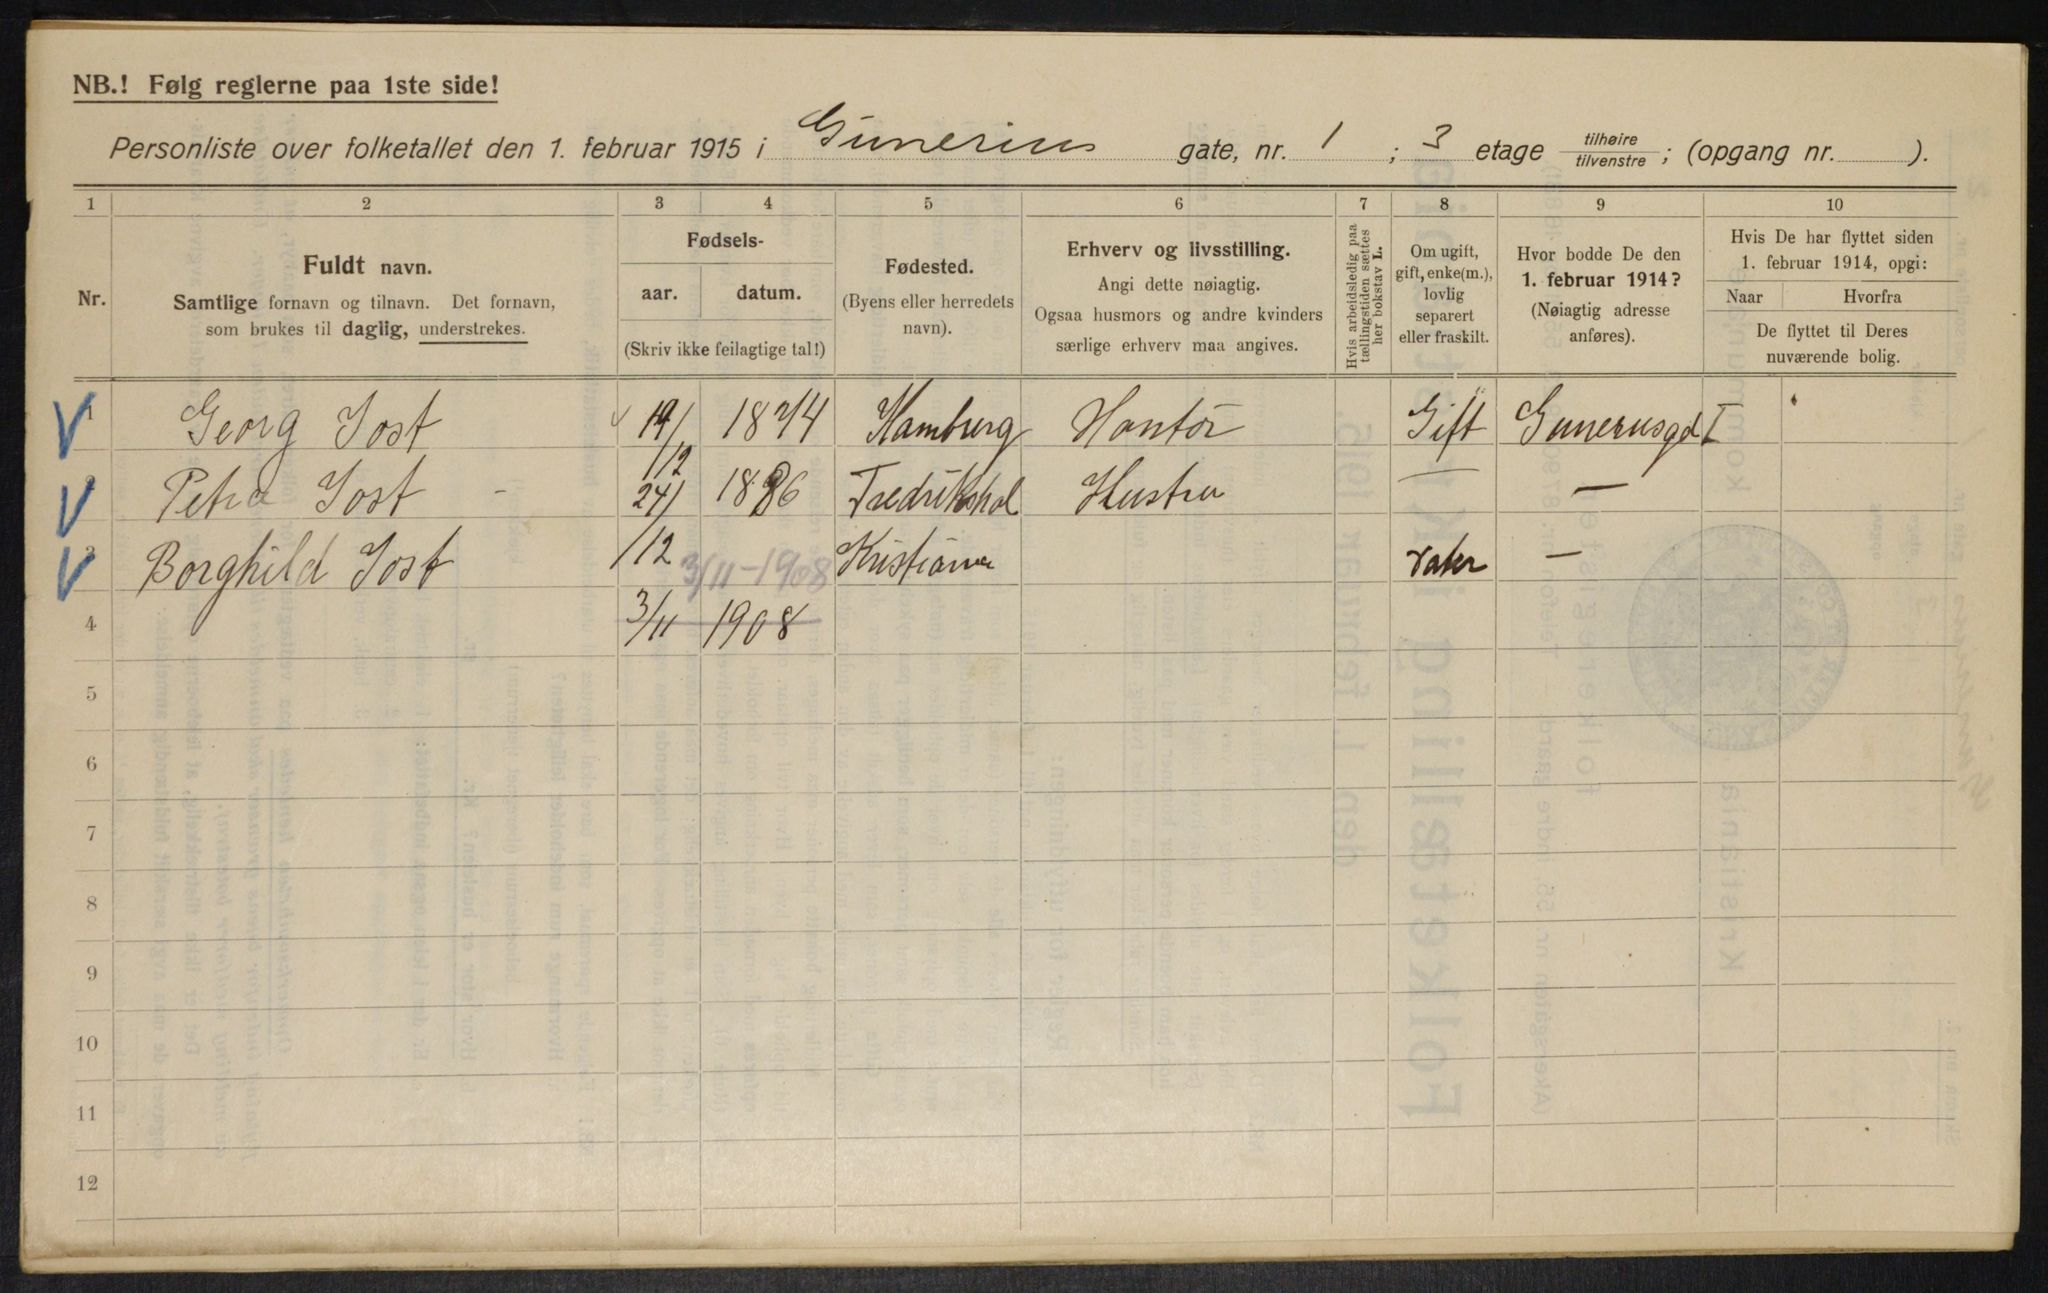 NB.! Følg reglerne paa 1ste side!
Personliste over folketallet den 1. februar 1915 i Gunerius gate, nr. 1 ; 3 etage tilhøire / tilvenstre ; (opgang nr. ).
1 2 3 4 5 6 7 8 9 10
Nr.
Fuldt navn.
Samtlige fornavn og tilnavn. Det fornavn,
som brukes til daglig, understrekes.
Fødsels-
aar. datum.
(Skriv ikke feilagtige tal!)
Fødested.
(Byens eller herredets
navn).
Erhverv og livsstilling.
Angi dette nøiagtig.
Ogsaa husmors og andre kvinders
særlige erhverv maa angives.
Hvis arbeidsledig paa
tællingstiden sættes
her bokstav L.
Om ugift,
gift, enke(m.),
lovlig
separert
eller fraskilt.
Hvor bodde De den
1. februar 1914?
(Nøiagtig adresse
anføres).
Hvis De har flyttet siden
1. februar 1914, opgi:
Naar Hvorfra
De flyttet til Deres
nuværende bolig.
1 Georg Jost 19/12 1874 Hamburg Kontor Gift Gunerusgd I
2 Petra Jost - 24/12 1886 Fredrikshal Hustru — —
3 Borghild Jost 3/11-1908 Kristiania —
4 3/11 1908
5
6
7
8
9
10
11
12